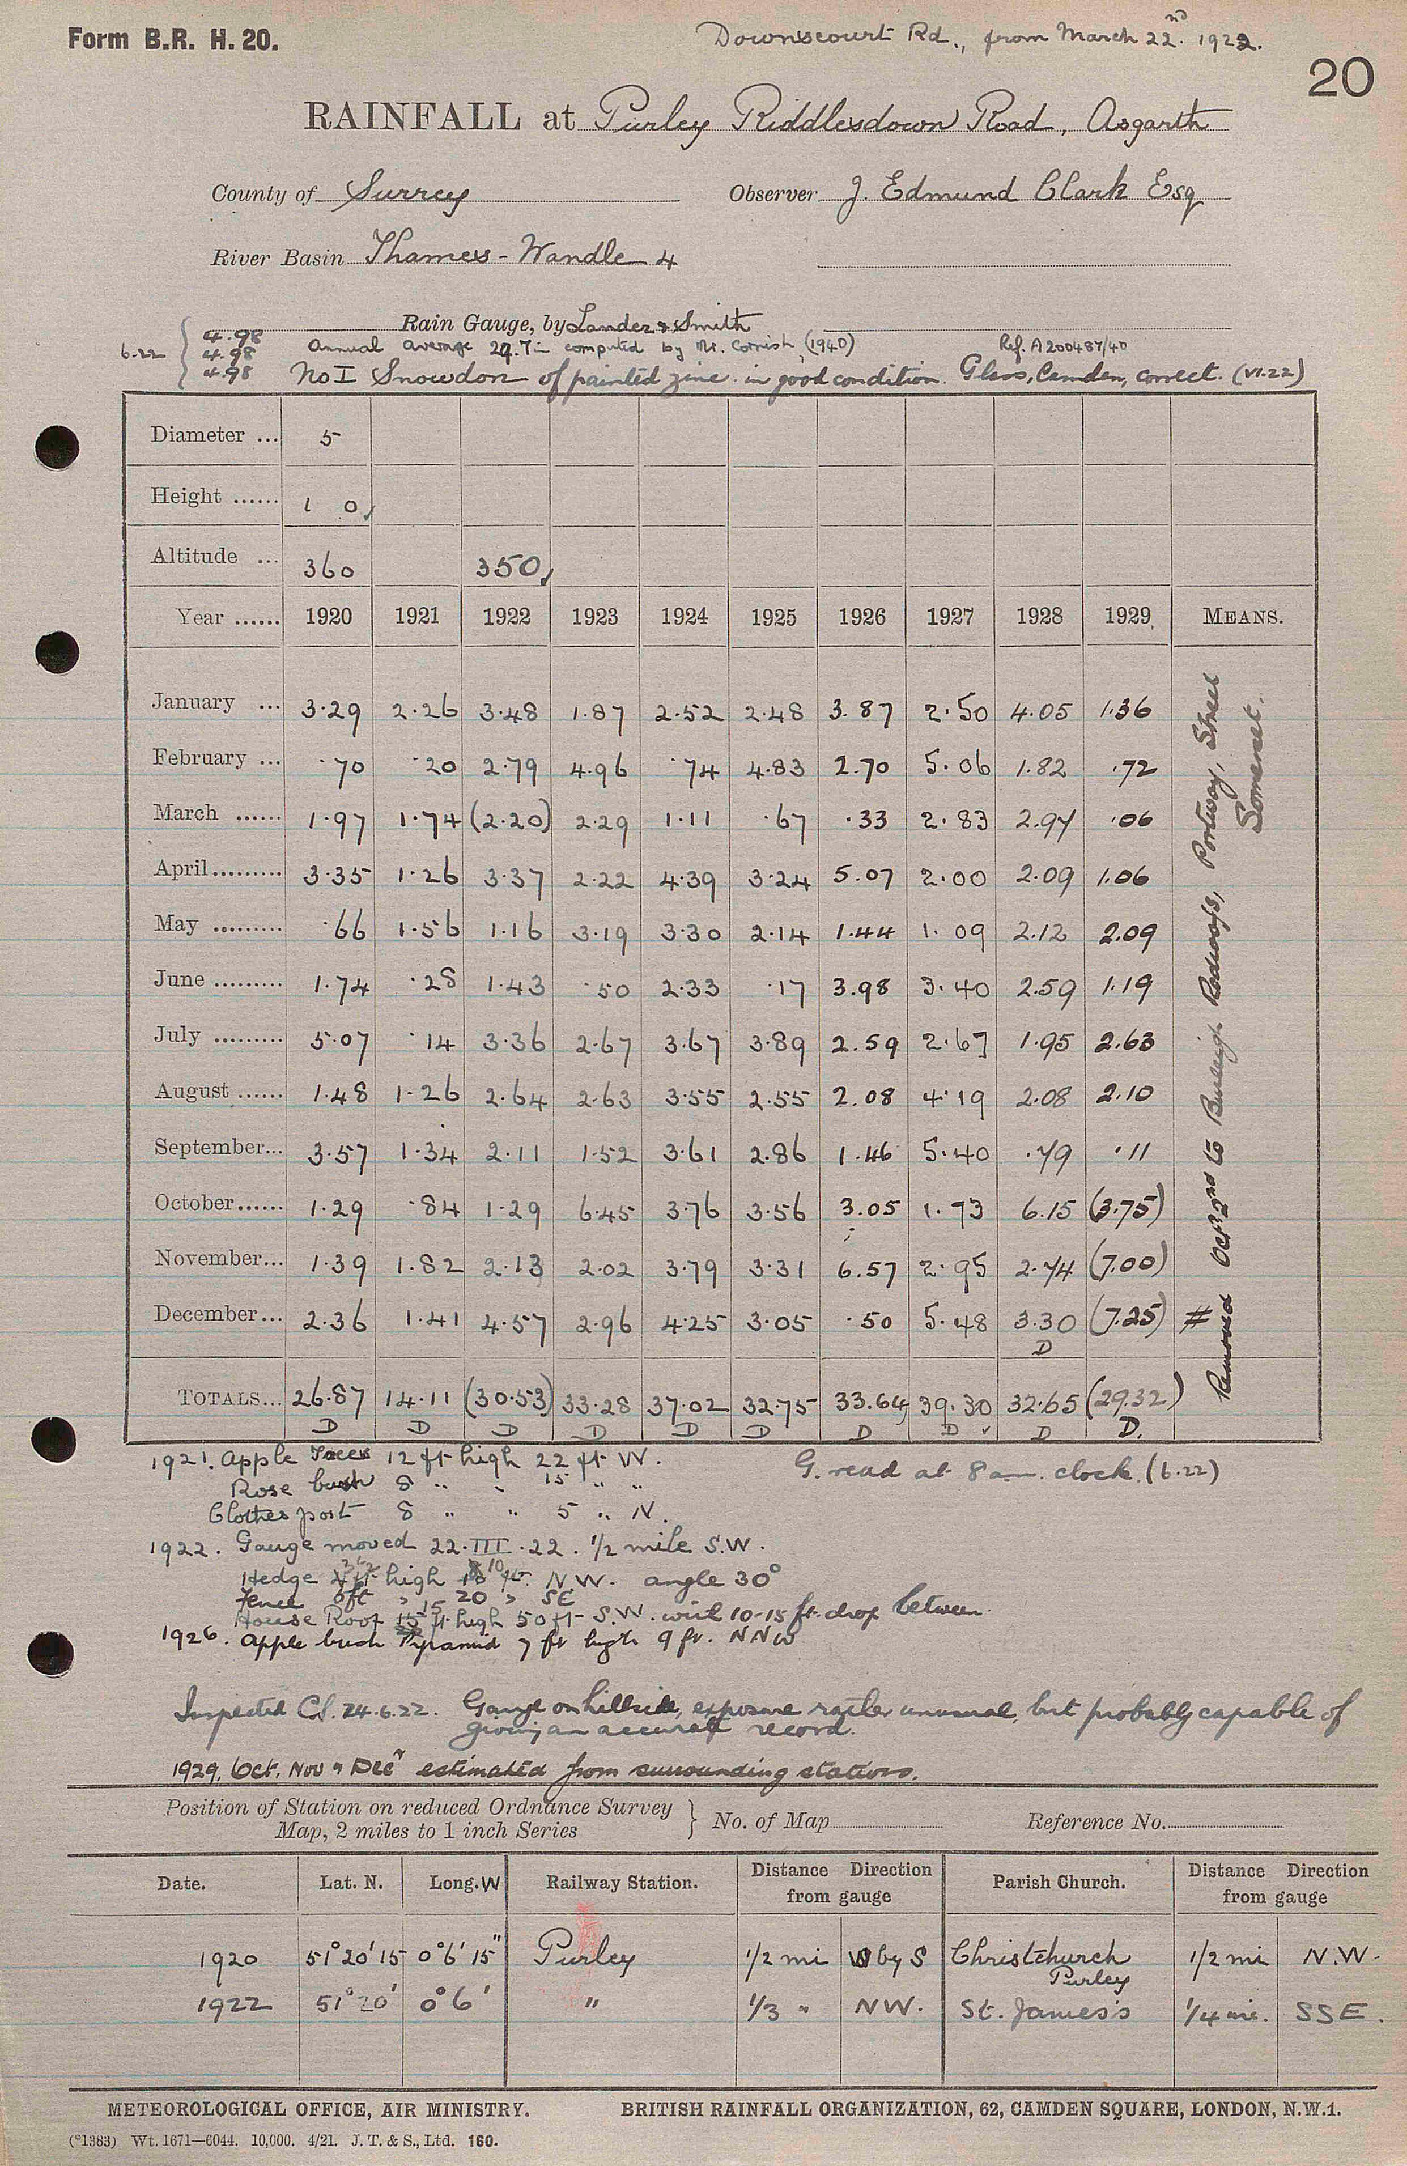 Form B.R. H. 20.
Downscourt Rd., from March 22nd. 1922.
20
RAINFALL at Purley Riddlesdown Road, Asgarth
County of Surrey Observer J. Edmund Clark Esq
River Basin Thames - Wandle 4
Rain Gauge, by Lander & Smith
6.22 { 4.98 4.98 4.98
Annual average 29.7 in computed by Mr. Cornish (1940) Ref. A200487/40
No I Snowdon of painted zinc. in good condition. Glass, Camden, correct. (VI.22)
Diameter ... 5
Height ...... 1 0
Altitude ... 360 350
Year ...... 1920 1921 1922 1923 1924 1925 1926 1927 1928 1929 MEANS.
January ... 3.29 2.26 3.48 1.87 2.52 2.48 3.87 2.50 4.05 1.36
February ... .70 .20 2.79 4.96 .74 4.83 2.70 5.06 1.82 .72
March ...... 1.97 1.74 (2.20) 2.29 1.11 .67 .33 2.83 2.97 .06
April......... 3.35 1.26 3.37 2.22 4.39 3.24 5.07 2.00 2.09 1.06
May ......... .66 1.56 1.16 3.19 3.30 2.14 1.44 1.09 2.12 2.09
June ......... 1.74 .28 1.43 .50 2.33 .17 3.98 3.40 2.59 1.19
July ......... 5.07 .14 3.36 2.67 3.67 3.89 2.59 2.67 1.95 2.63
August ...... 1.48 1.26 2.64 2.63 3.55 2.55 2.08 4.19 2.08 2.10
September... 3.57 1.34 2.11 1.52 3.61 2.86 1.46 5.40 .79 .11
October...... 1.29 .84 1.29 6.45 3.76 3.56 3.05 1.73 6.15 (3.75)
November... 1.39 1.82 2.13 2.02 3.79 3.31 6.57 2.95 2.74 (7.00)
December... 2.36 1.41 4.57 2.96 4.25 3.05 .50 5.48 3.30 (7.25) #
D
TOTALS... 26.87 14.11 (30.53) 33.28 37.02 32.75 33.64 39.30 32.65 (29.32)
D D D D D D D D D D.
Removed Oct 2nd to Burleigh Portway, Street
Somerset.
1921. Apple Trees 12 ft high 22 ft W.
Rose bush 8 " " 15 " "
Clothes post 8 " " 5 " N.
G. read at 8 am. clock. (6.22)
1922. Gauge moved 22.III.22. 1/2 mile S.W.
Hedge high 10 ft. N.W. angle 30°
Fence 6ft " 20 " SE
House Roof 15 ft high 50 ft S.W. with 10-15 ft drop between.
1926. Apple bush Pyramid 7 ft high 9 ft. NNW
Inspected 24.6.22. Gauge on hillside, exposure rather unusual, but probably capable of
giving an accurate record.
1929. Oct, Nov & Decr estimated from surrounding stations.
Position of Station on reduced Ordnance Survey
Map, 2 miles to 1 inch Series } No. of Map Reference No.
Date. Lat. N. Long. W Railway Station. Distance Direction from gauge Parish Church. Distance Direction from gauge
1920 51° 20' 15 0° 6' 15" Purley 1/2 mi W by S Christchurch Purley 1/2 mi N.W.
1922 51° 20' 0° 6' " 1/3 " NW. St. James's 1/4 mi. SSE.
METEOROLOGICAL OFFICE, AIR MINISTRY. BRITISH RAINFALL ORGANIZATION, 62, CAMDEN SQUARE, LONDON, N.W.1.
(*1383) Wt. 1671—6044. 10,000. 4/21. J. T. & S., Ltd. 160.